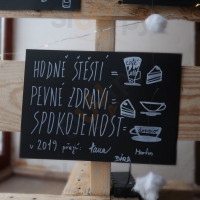 HODNĚ ŠTĚSTÍ =
PEVNÉ ZDRAVÍ =
SPOKOJENOST =
v 2019 přejí: Hana
Martin